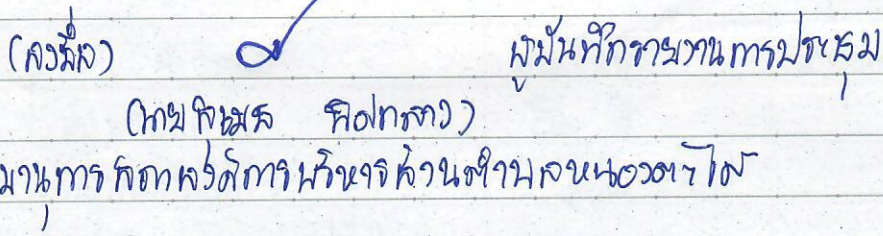 (ลงชื่อ) ผู้บันทึกรายงานการประชุม
(นาย
เลขานุการสภาองค์การบริหารส่วนตำบลหนองตะไก้